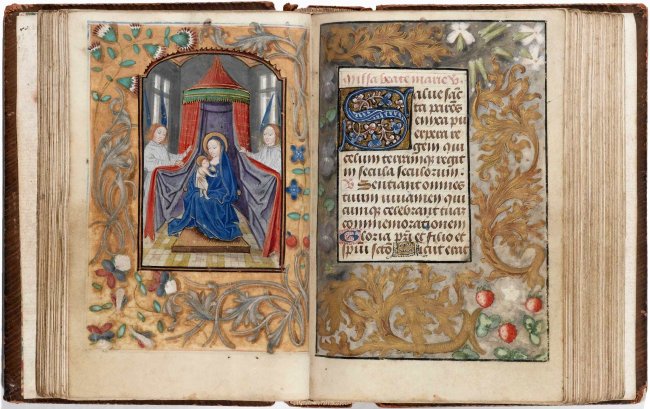 Missa beate marie v
Salue sāc
ta parens
enixa pu
erpera re
gem qui
celum terrāque regit
in secula seculorum.
V Sentiant omnes
tuum iuuamen qui
cumque celebrant tuā
commemorationem
Gloria pr̄i et filio et
sp̄ui scт̄o Sicut erat